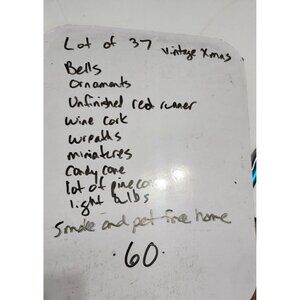 Lot of 37 vintage Xmas
Bells
ornaments
Unfinished red runner
wine cork
wreaths
miniatures
candy cane
lot of pinecones
light bulbs
Smoke and pet free home
.60.